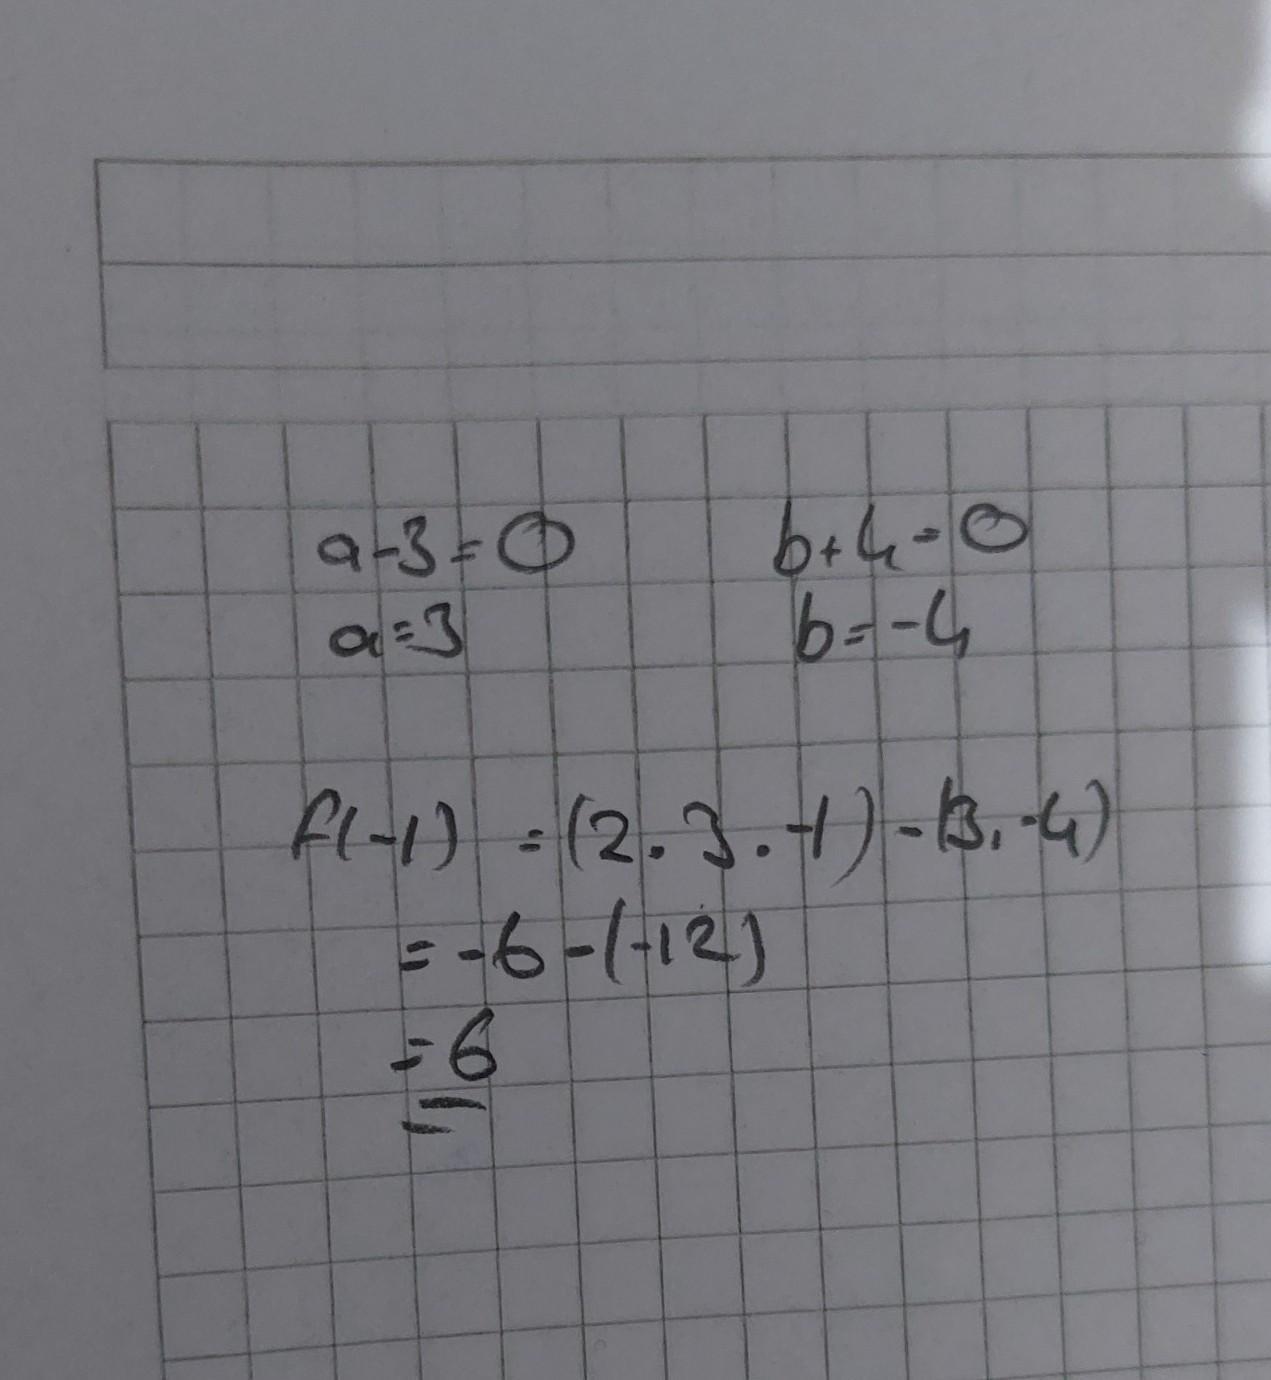 a-3=0 b+4=0
a=3 b=-4
f(-1) =(2.3.-1)-(3.-4)
=-6-(-12)
=6